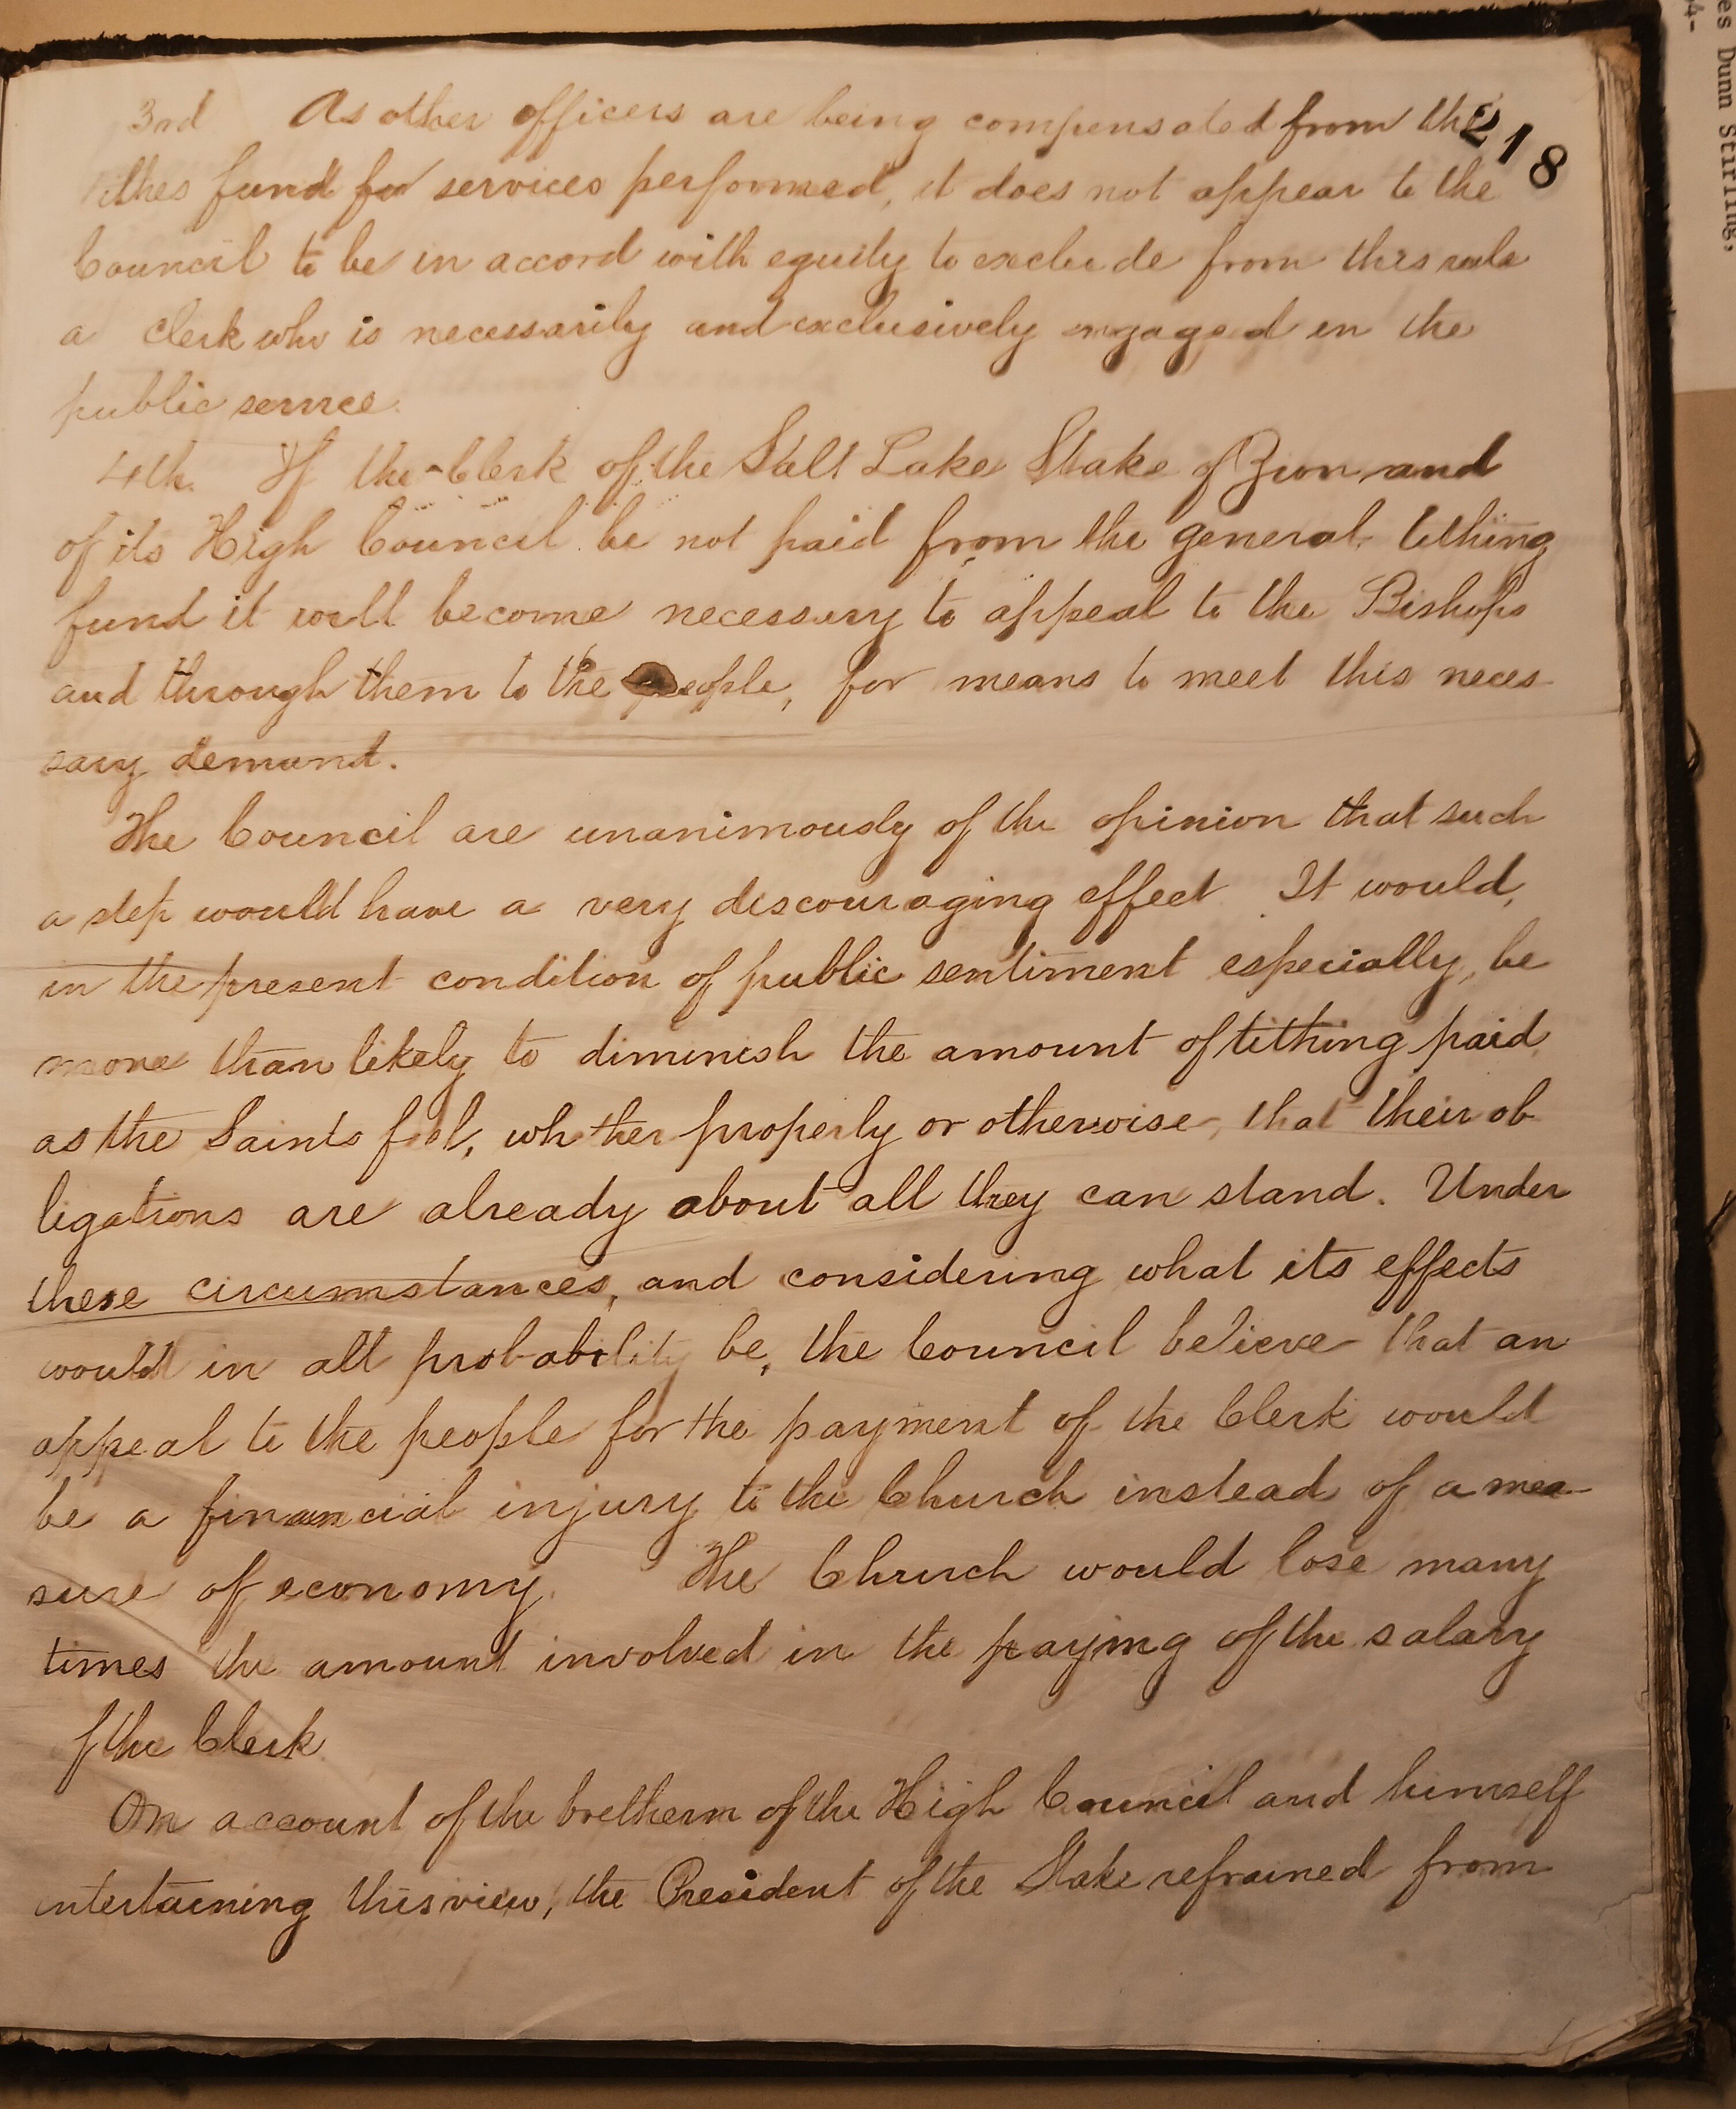 218
3rd As other officers are being compensated from the
ithes fund for services performed, it does not appear to the
Council to be in accord with equity to exclude from this rule
a clerk who is necessarily and exclusively engaged in the
public service.
4th. If the Clerk of the Salt Lake Stake of Zion and
of its High Council be not paid from the general tithing
fund it will become necessary to appeal to the Bishops
and through them to the people, for means to meet this neces
sary demand.
The Council are unanimously of the opinion that such
a step would have a very discouraging effect. It would,
in the present condition of public sentiment especially, be
more than likely to diminish the amount of tithing paid
as the Saints feel, whether properly or otherwise, that their ob
ligations are already about all they can stand. Under
these circumstances, and considering what its effects
would in all probability be, the Council believe that an
appeal to the people for the payment of the Clerk would
be a financial injury to the Church instead of a mea-
sure of economy. The Church would lose many
times the amount involved in the paying of the salary
f the Clerk.
On account of the bretherm of the High Council and himself
entertaining this view, the President of the Stake refrained from
es Dunn Stirling,
4-